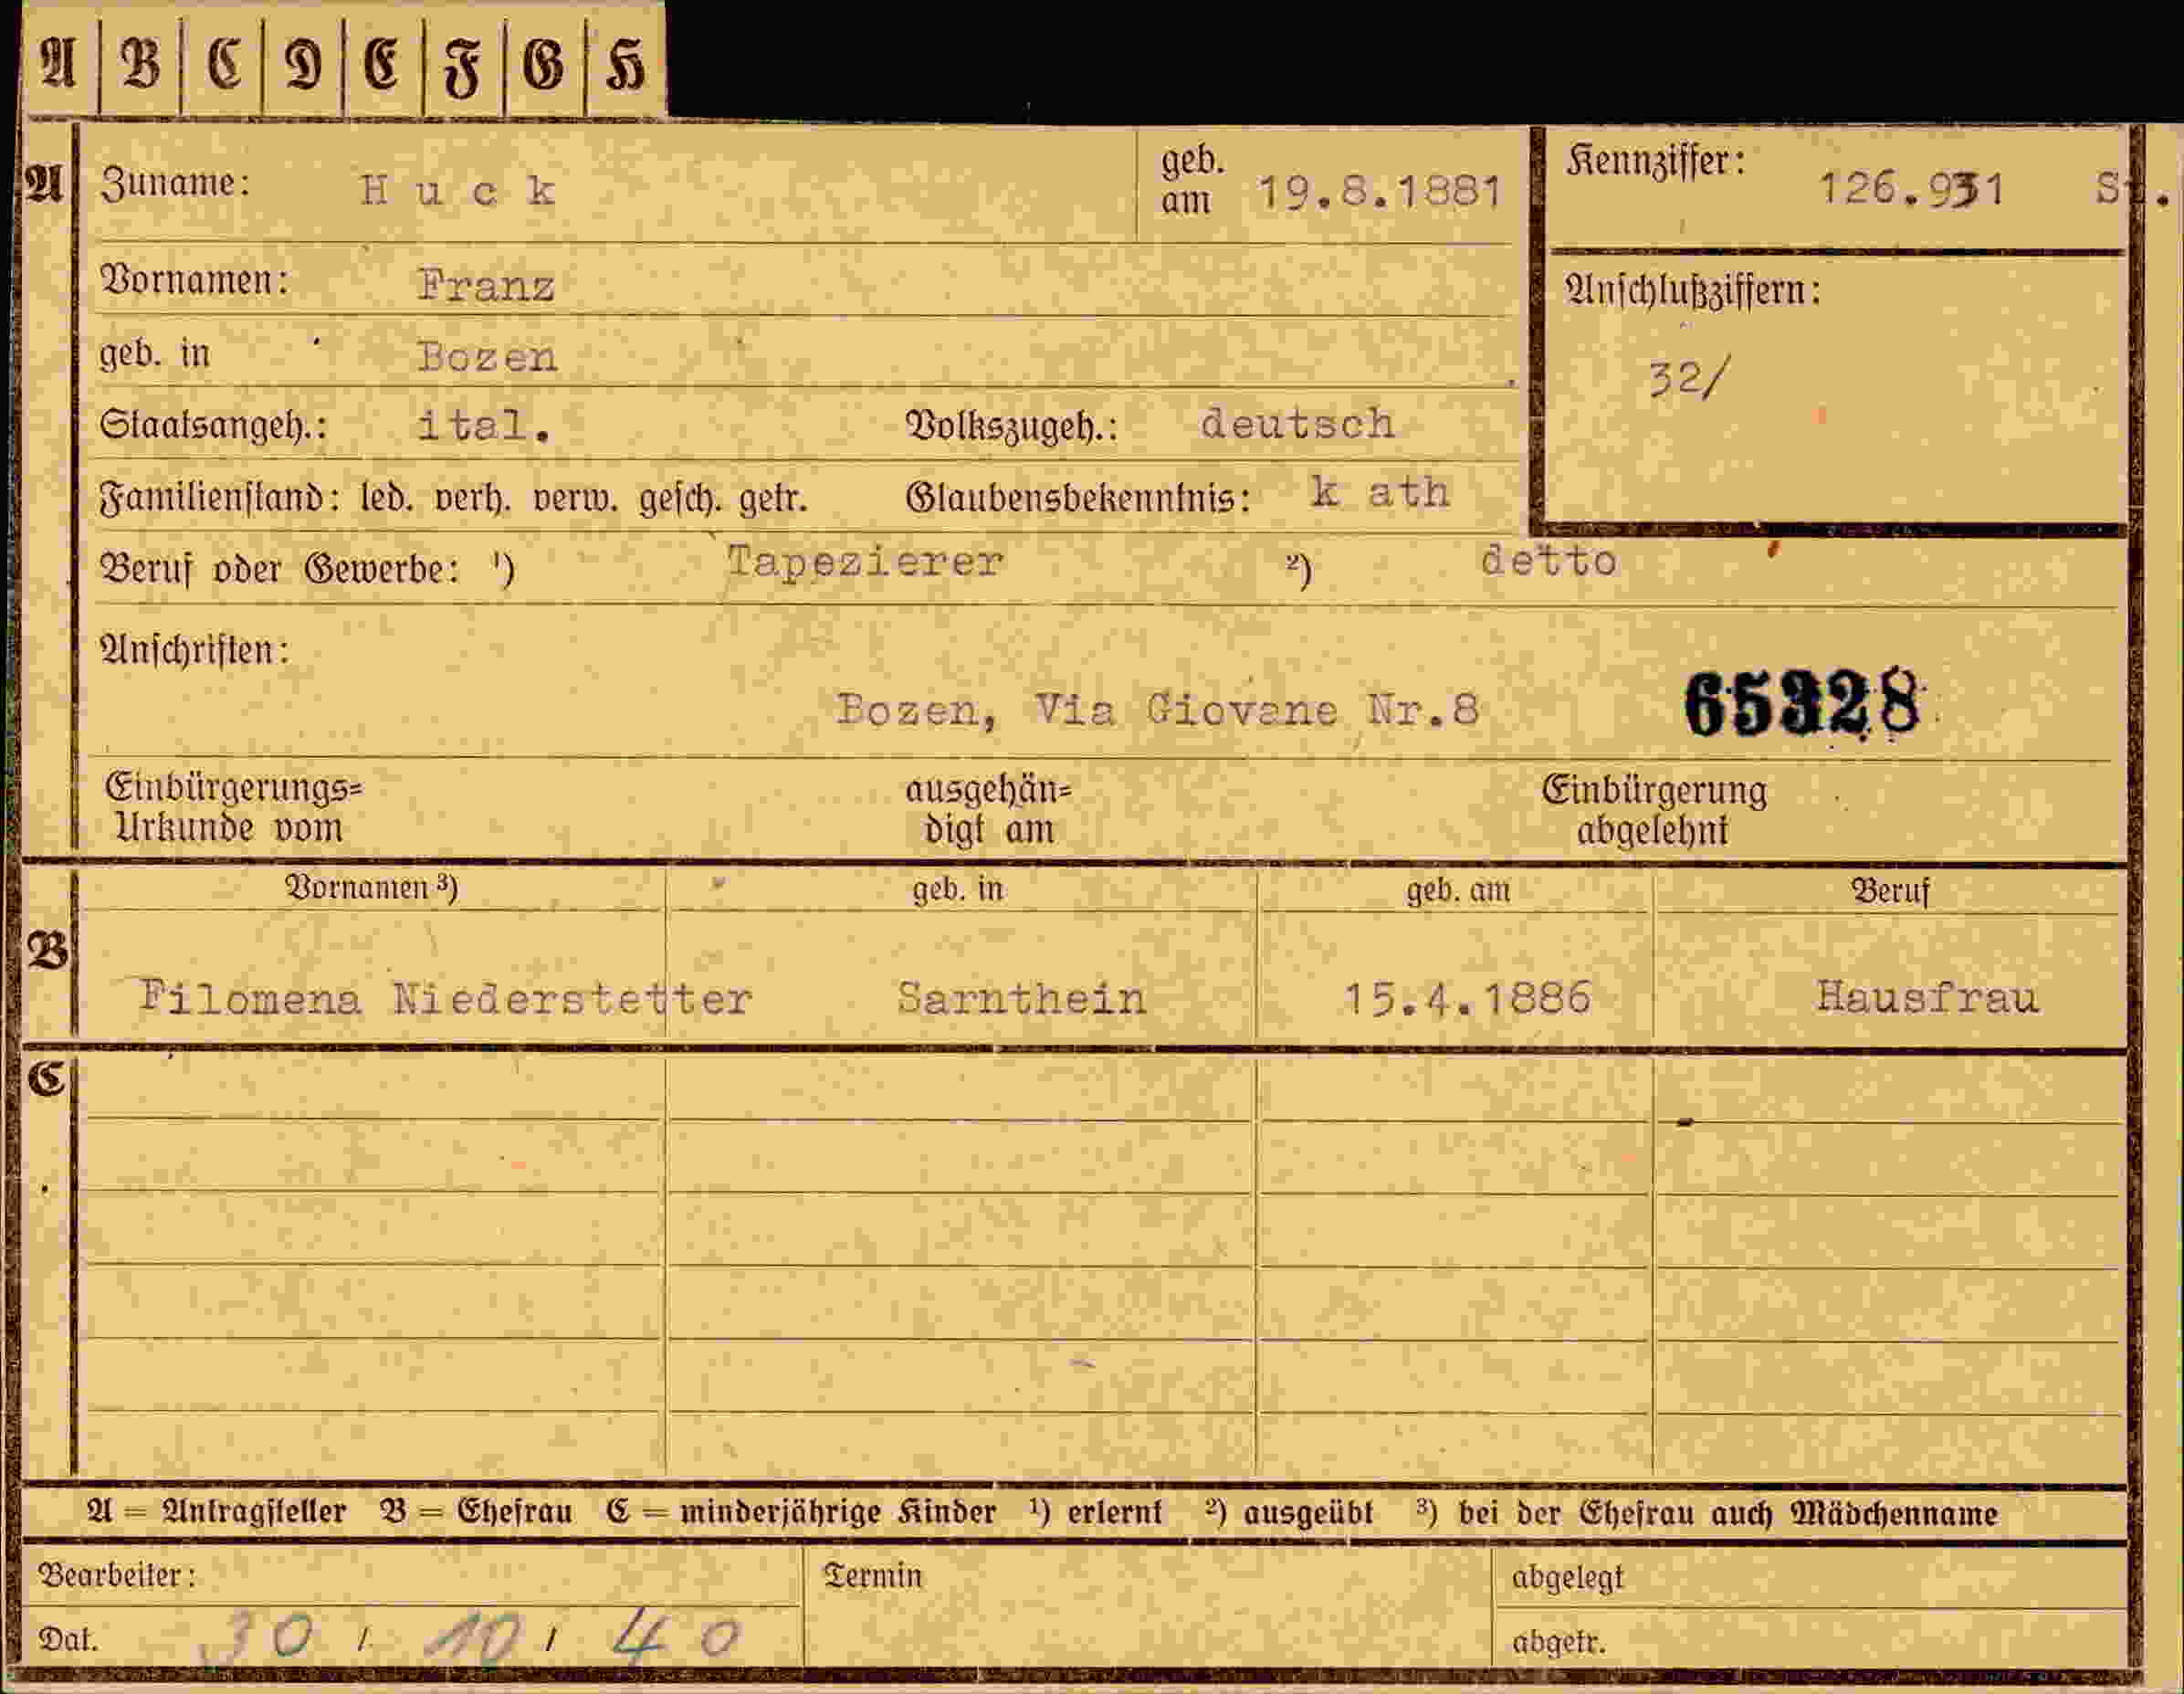 A B C D E F G H
A Zuname: Huck geb. am 19.8.1881 Kennziffer: 126.931 St.
Vornamen: Franz Anschlußziffern:
geb. in Bozen 32/
Staatsangeh.: ital. Volkszugeh.: deutsch
Familienstand: led. verh. verw. gesch. getr. Glaubensbekenntnis: k ath
Beruf oder Gewerbe: ¹) Tapezierer ²) detto
Anschriften:
Bozen, Via Giovane Nr.8 65328
Einbürgerungs= ausgehän= Einbürgerung
Urkunde vom digt am abgelehnt
Vornamen ³) geb. in geb. am Beruf
B
Filomena Niederstetter Sarnthein 15.4.1886 Hausfrau
C
A = Antragsteller B = Ehefrau C = minderjährige Kinder ¹) erlernt ²) ausgeübt ³) bei der Ehefrau auch Mädchenname
Bearbeiter: Termin abgelegt
Dat. 30 / 10 / 40 abgetr.